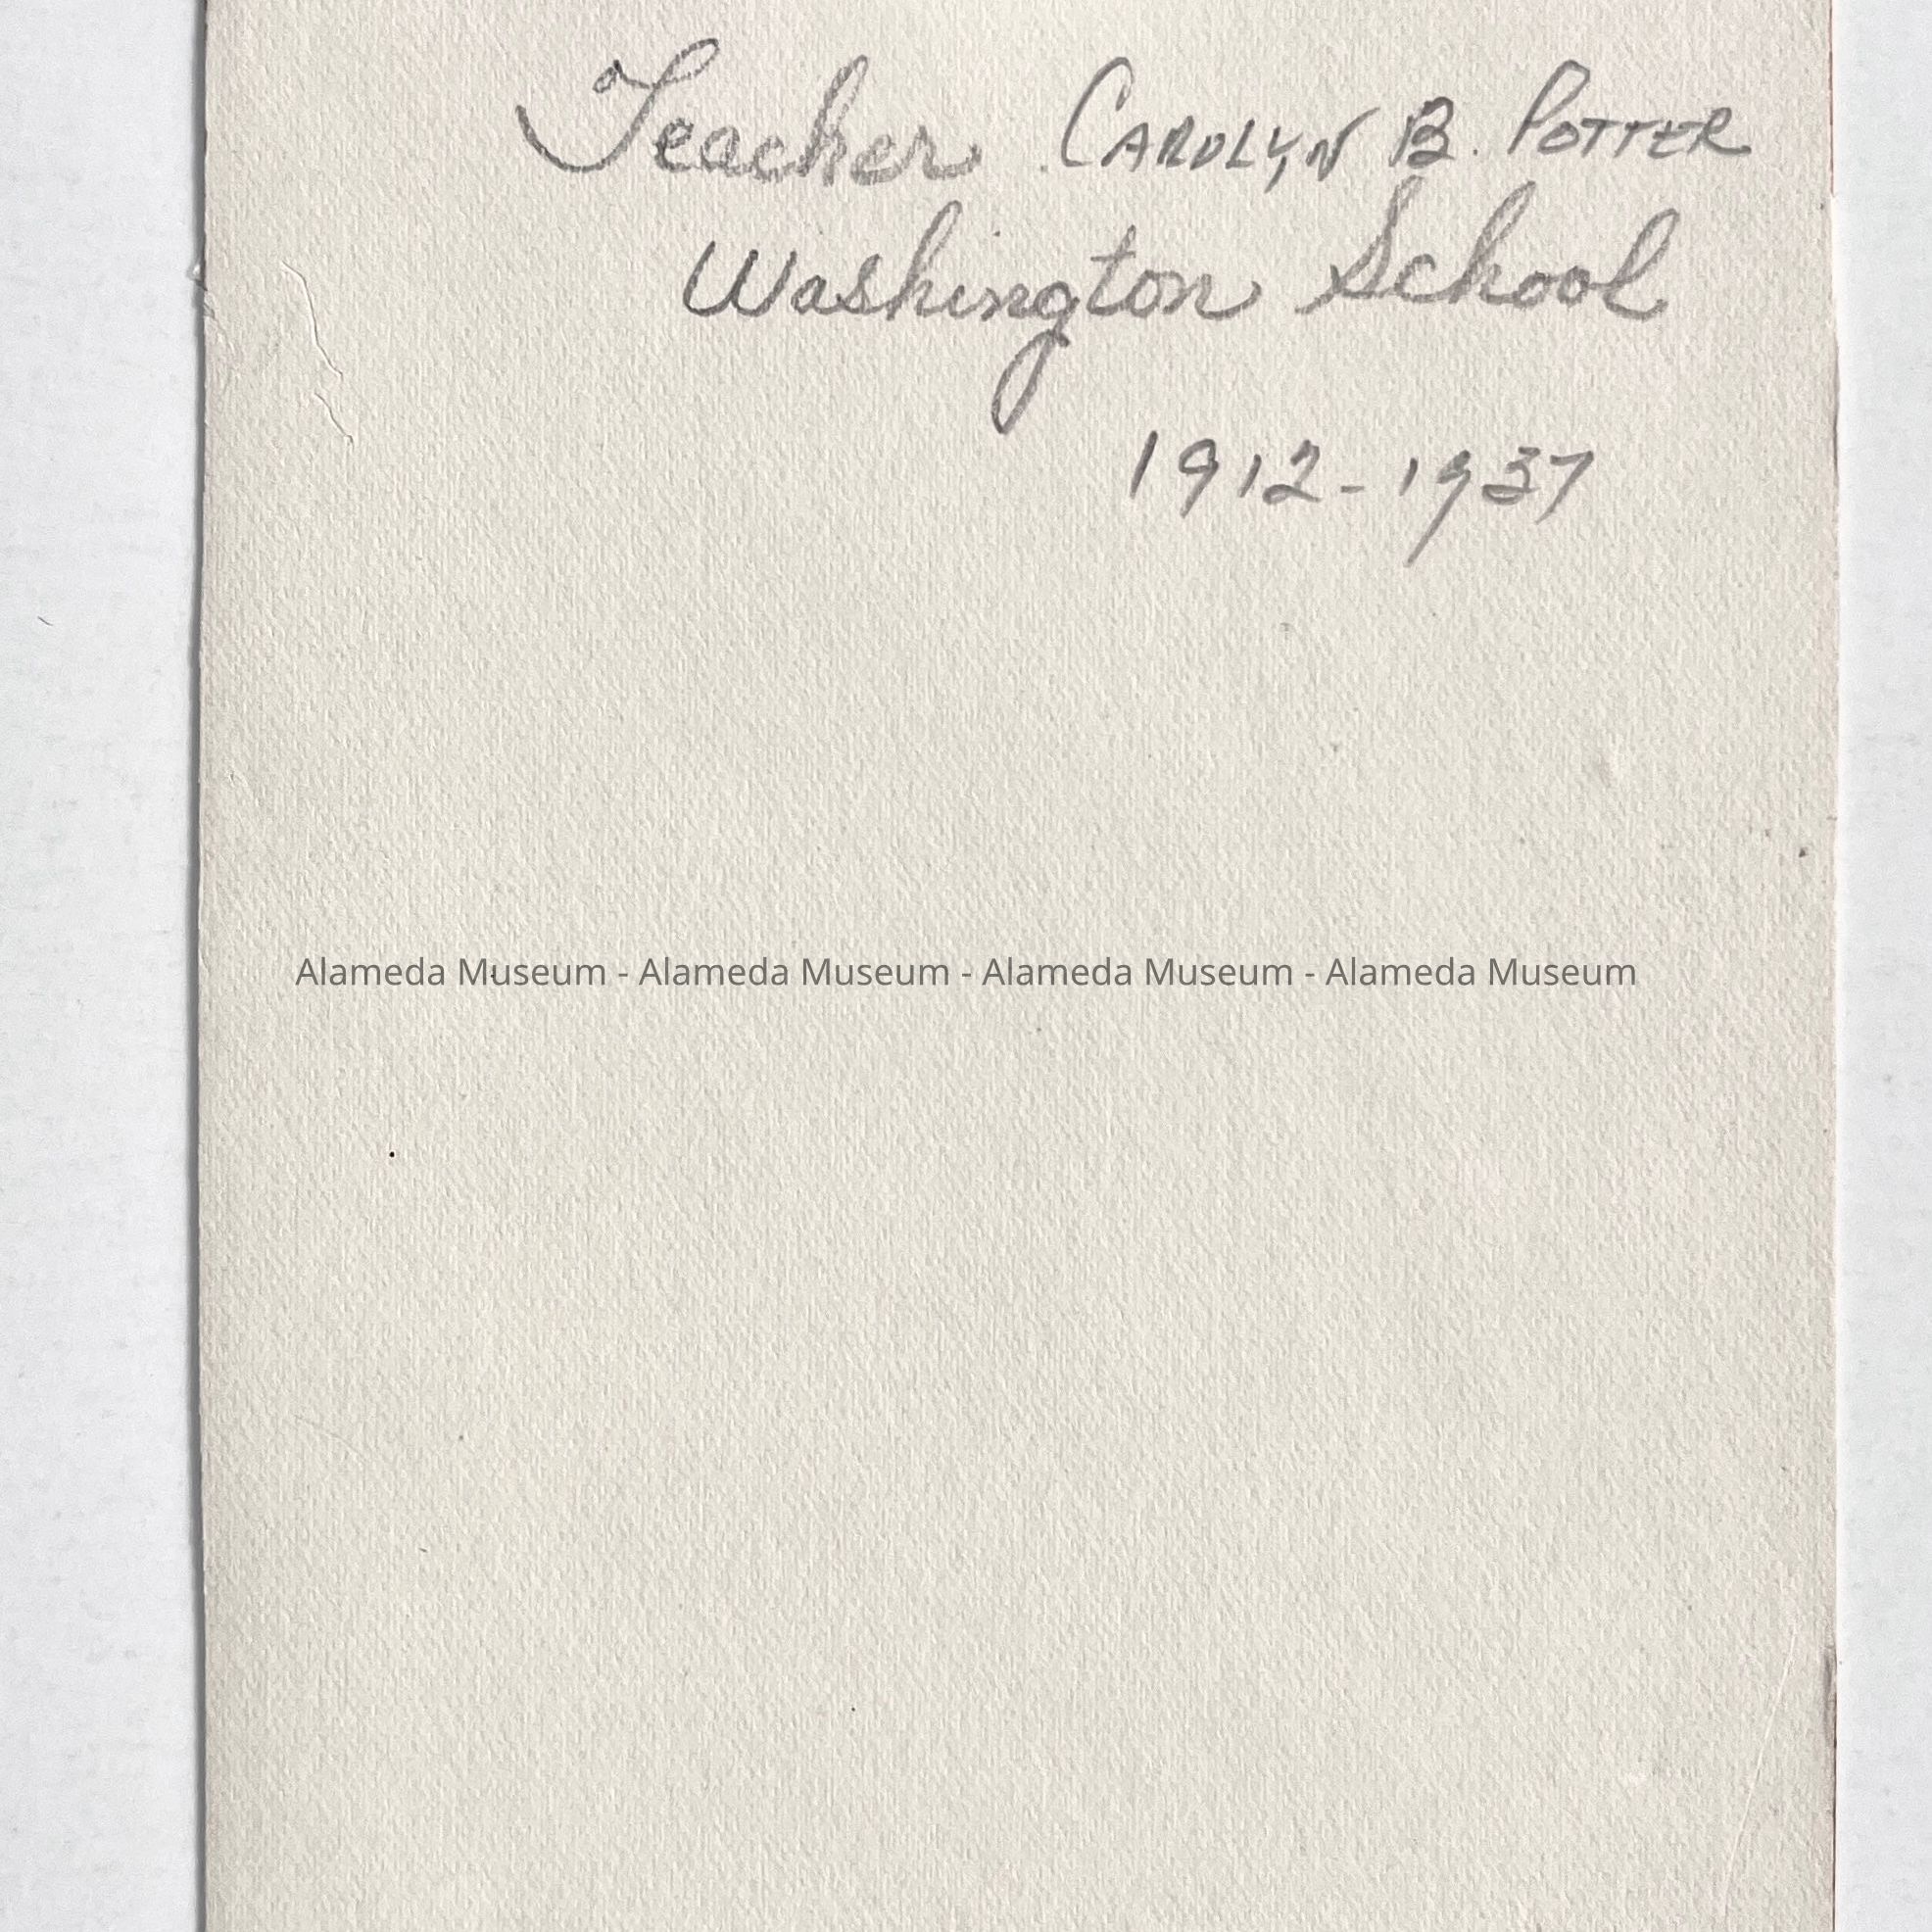 Teacher Carolyn B. Potter
Washington School
1912-1937
Alameda Museum - Alameda Museum - Alameda Museum - Alameda Museum